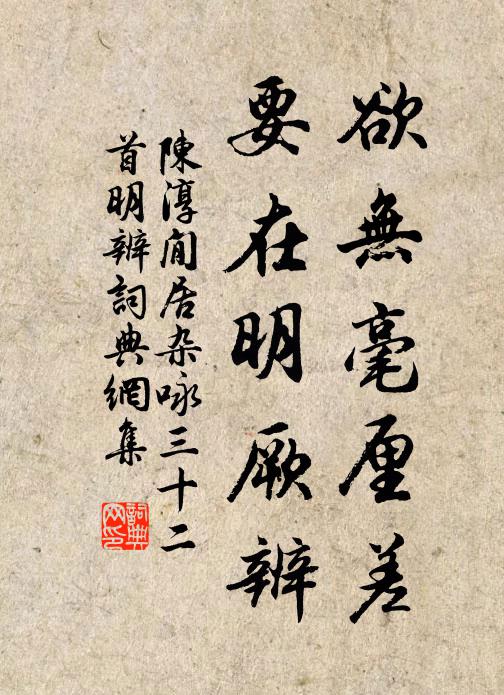 欲無毫厘差
要在明厥辨
陳淳閒居杂咏三十二
首明辨詞典網集
詞典网印